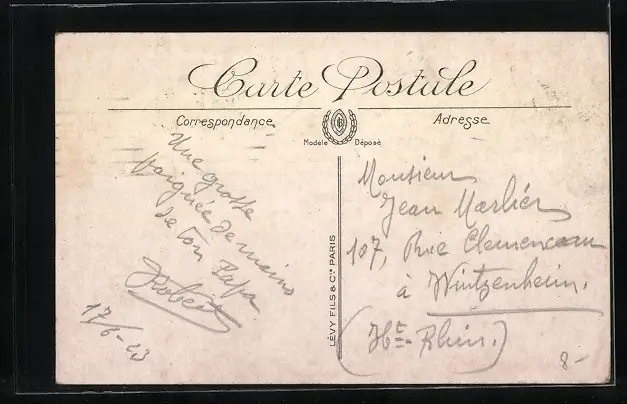 Carte Postale
Correspondance
Adresse
Modèle Déposé
Une grosse
poignée de mains
de ton Papa
Robert
17/6-23
LÉVY FILS & Cie PARIS
Monsieur
Jean Marliér
107, Rue Clemenceau
à Wintzenheim.
(Ht-Rhin.)
8-